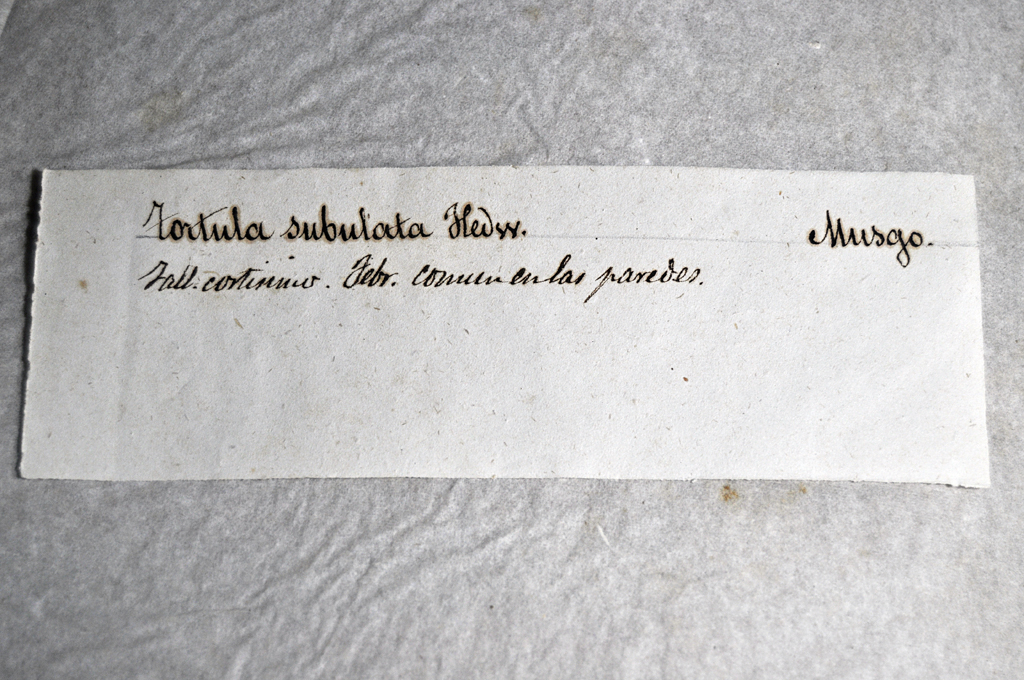 Tortula subulata Hedw. Musgo.
Tall. cortisimo. Febr. comun en las paredes.